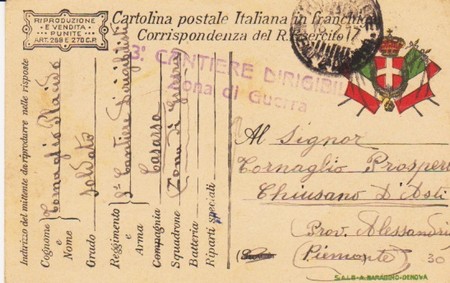 RIPRODUZIONE
E VENDITA
PUNITE
ART. 268 E 270 C.P.
Cartolina postale Italiana in franchigia
Corrispondenza del R. Esercito
17
3° CANTIERE DIRIGIBILI
Zona di Guerra
Indirizzo del mittente da riprodurre nelle risposte
Cognome e Nome Cornaglio
Grado Soldato
Reggimento e Arma 3° Cantiere Dirigibili
Compagnia Casarsa
Squadrone Zona di Guerra
Batteria
Riparti speciali
Al Signor
Cornaglio Prospero
Chiusano D'Asti
Prov. Alessandria
(Piemonte) 30
GENOVA